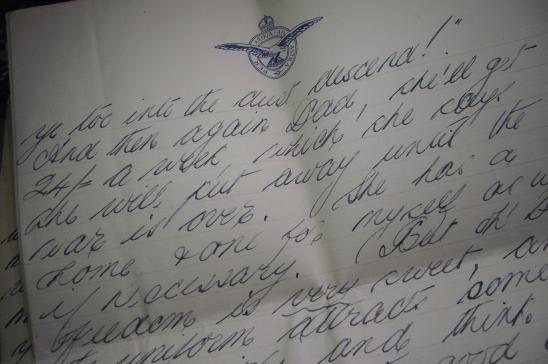 PER ARDUA AD ASTRA
ye too into the dust descend!"
And then again Dad, she'll get
24/- a week which she says
she will put away until the
war is over. She has a
home & one for myself as w
if necessary. (But oh D
freedom is very sweet, an
uniform attracts some
and think.
good